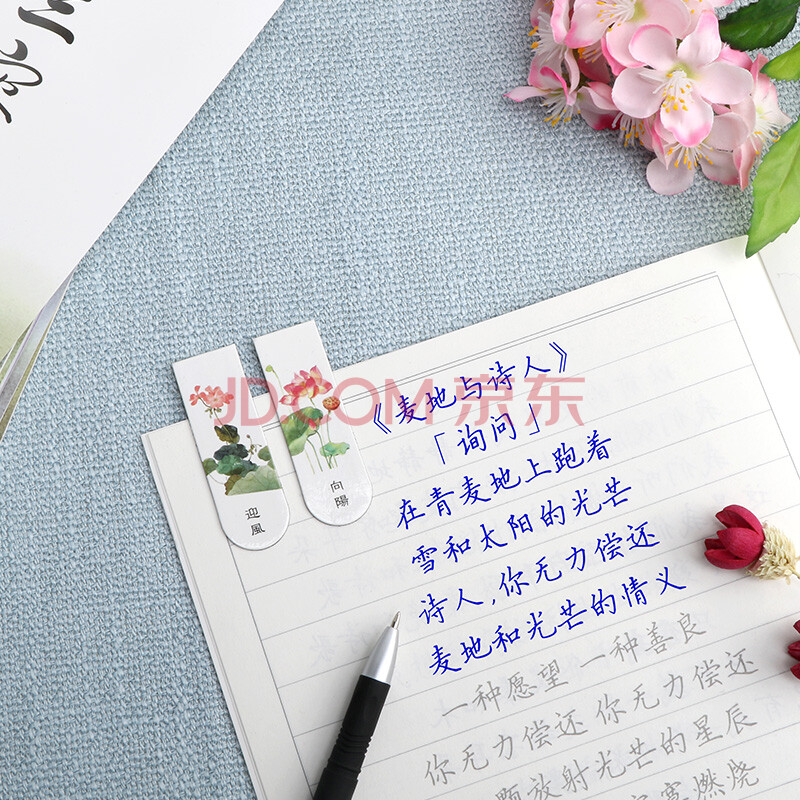 JD.COM 京东
迎風
向陽
《麦地与诗人》
「询问」
在青麦地上跑着
雪和太阳的光芒
诗人,你无力偿还
麦地和光芒的情义
一种愿望 一种善良
你无力偿还 你无力偿还
颗放射光芒的星辰
寞燃烧